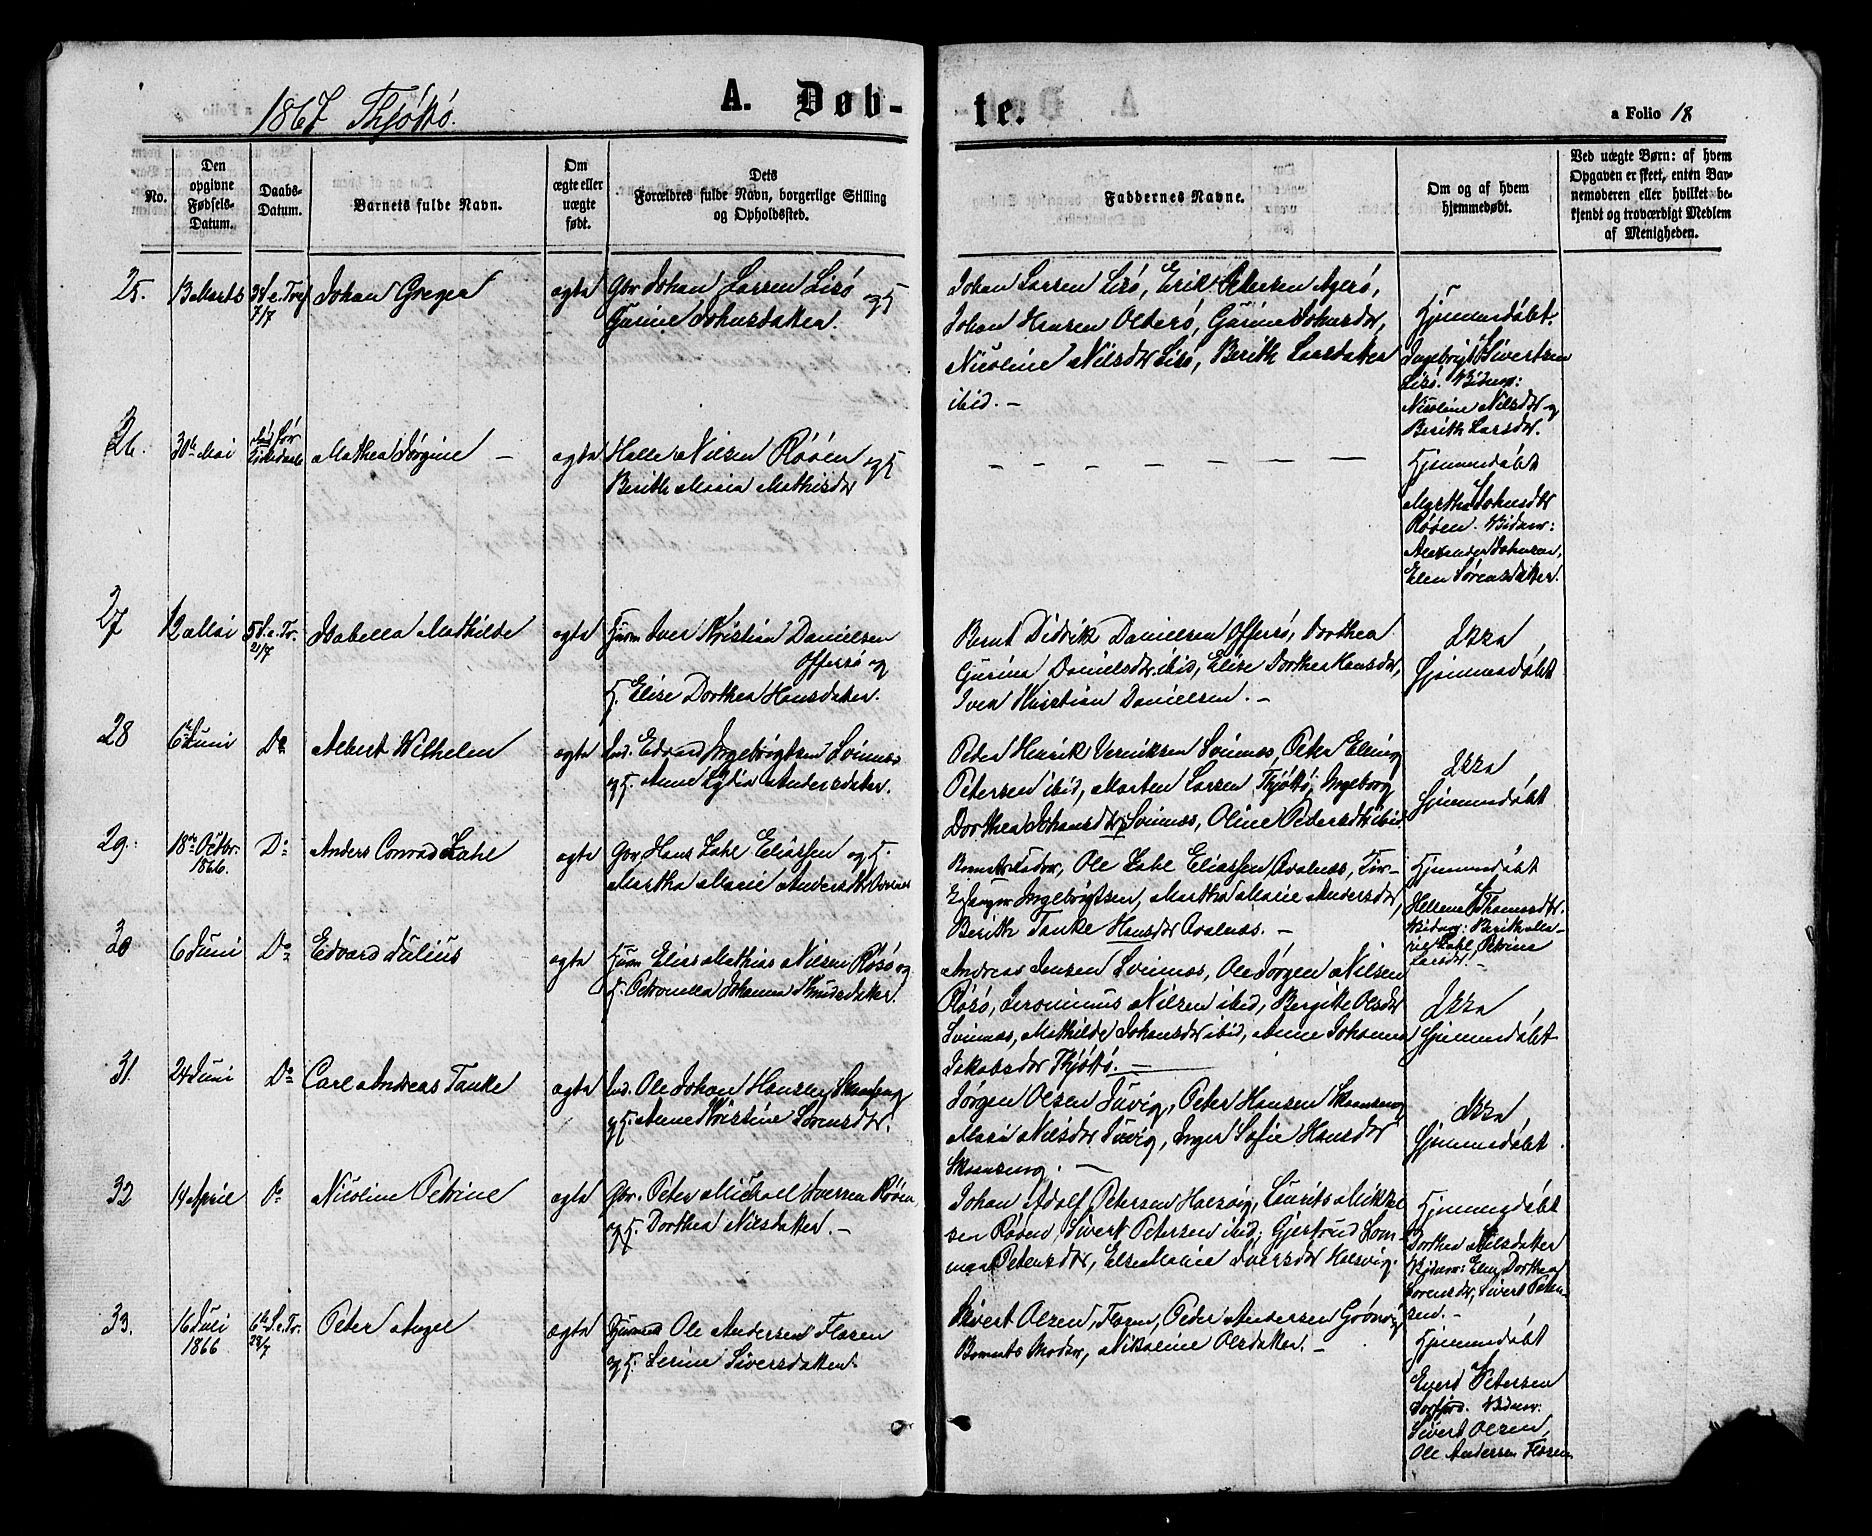 1867 Thjøttø.
A. Døb-
te.
a Folio 18
No.
Den opgivne Fødsels-Datum.
Daabs-Datum.
Barnets fulde Navn.
Om ægte eller uægte født.
Dets Forældres fulde Navn, borgerlige Stilling og Opholdssted.
Faddernes Navne.
Om og af hvem hjemmedøbt.
Ved uægte Børn: af hvem Opgaven er skeet, enten Bar-nemoderen eller hvilket be-kjendt og troværdigt Medlem af Menigheden.
25. 13 Marts 3 S. e. Tref 7/7 Johan Greger ægte Gbr Johan Larsen Lisø og H
Gurine Johnsdatter.
Johan Larsen Lisø, Erik Petersen Agerø,
Johan Hansen Olderø, Gurine Johnsdr,
Nicoline Nilsdr Lisø, Berith Larsdatter
ibid. —
Hjemmedøbt.
Ingebrigt Sivertsen
Lisø. Vidner:
Nicoline Nilsdr og
Berith Larsdr.
26. 30te Mai Mathea Jørgine — ægte Halle Nilsen Røøen og H
Berith Maria Mathisdr
— — — — — — —
Hjemmedøbt
Martha Johnsdtr
Røøen. Vidner:
Alexander Johnsen,
Elen Sørensdatter.
27 12 Mai 5 S. e. Tr. 21/7 Isabella Mathilde ægte Huusm Iver Kristian Danielsen
Offersø og
H. Elise Dorthea Hansdatter.
Bernt Didrik Danielsen Offersø, Dorthea
Gurina Danielsdtr ibid, Elise Dorthea Hansdr,
Iver Kristian Danielsen. —
Ikke
Hjemmedøbt
28 6te Juni Do Albert Wilhelm ægte Ind. Edvard Ingebrigtsen Svinnes
og H. Anne Lydia Andersdatter.
Peter Henrik Svinnes, Peter Elling
Petersen ibid, Morten Larsen Thjøttø, Ingeborg
Dorthea Johansdtr Svinnes, Oline Pedersdtr ibid
Ikke
Hjemmedøbt
29. 18de Octbr. 1866. Do Anders Conrad Zahl ægte Gbr Hans Zahl Eliassen og H.
Martha Marie Andersdtr
Barnets Fader, Ole Zahl Eliassen Qvalnæs,
Ingebrigtsen, Martha Marie Andersdr,
Berith Tanke Hansdtr Qvalnæs. —
Hjemmedøbt
Hellene Thomasdtr.
Vidner: Berith Ma-
rie Zahl, Petrine
Larsdr. —
30 6 Juni Do Edvard Julius ægte Huusm Elias Mathias Nilsen Rosø og
H. Petronella Johanna Knudsdatter.
Andreas Jensen Svinnes, Ole Jørgen Nilsen
Rosø, Jeronimus Nilsen ibid, Bergitte Olsdr
Svinnes, Mathilde Johansdr ibid, Anne Johanna
Jakobsdr Thjøttø. —
Ikke
Hjemmedøbt
31. 24 Juni Do Carl Andreas Tanke ægte Ind. Ole Johan Hansen
og H. Anne Kristine Sørensdtr.
Jørgen Olsen Juvig, Peter Hansen
Mari Nilsdr Juvig, Inger Sofie Hansdr
Ikke
Hjemmedøbt.
32 14 April Do Nicoline Petrine ægte Gbr. Peter Michael Iversen Røøen,
og H. Dorthea Nilsdatter. —
Johan Adolf Petersen Halsvig, Laurits Mikkel-
sen Røøen, Sivert Petersen ibid, Gjertrud Lom-
maa Petersdr, Else Marie Iversdr Halsvig.
Hjemmedøbt
Dorthea Nilsdatter
Vidner: Elen Dorthea
Sorensdr, Sivert Peter-
sen. —
33. 16 Juli 1866 6te S. e. Tr. 28/7 Peter Angel ægte Huusmd Ole Andersen Flosen
og H. Serine Siversdatter.
Sivert Olsen, Flosen, Peder Andersen Grønvig
Barnets Moder, Nikoline Olsdatter. —
Hjemmedøbt
Evert Petersen
Sorfjord. Vidner:
Sivert Olsen,
Ole Andersen Flosen